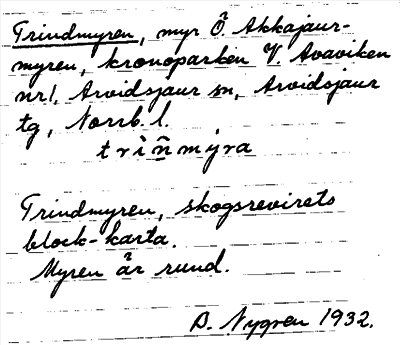 Trindmyren, myr Ö Akkajaur-
myren, kronoparken V. Avaviken
nr1, Arvidsjaur sn, Arvidsjaur
tg, Norrb. l.
trìn̄mýra
Trindmyren, skogsrevirets
block-karta.
Myren är rund.
B. Nygren 1932.